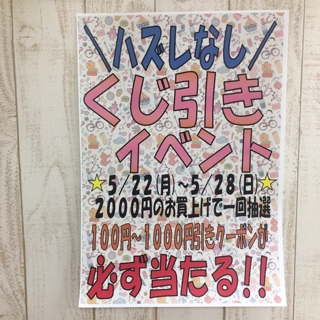 ＼ハズレなし／
くじ引き
イベント
★5/22(月)〜5/28(日)★
2000円のお買上げで一回抽選
100円〜1000円引きクーポンが
必ず当たる!!